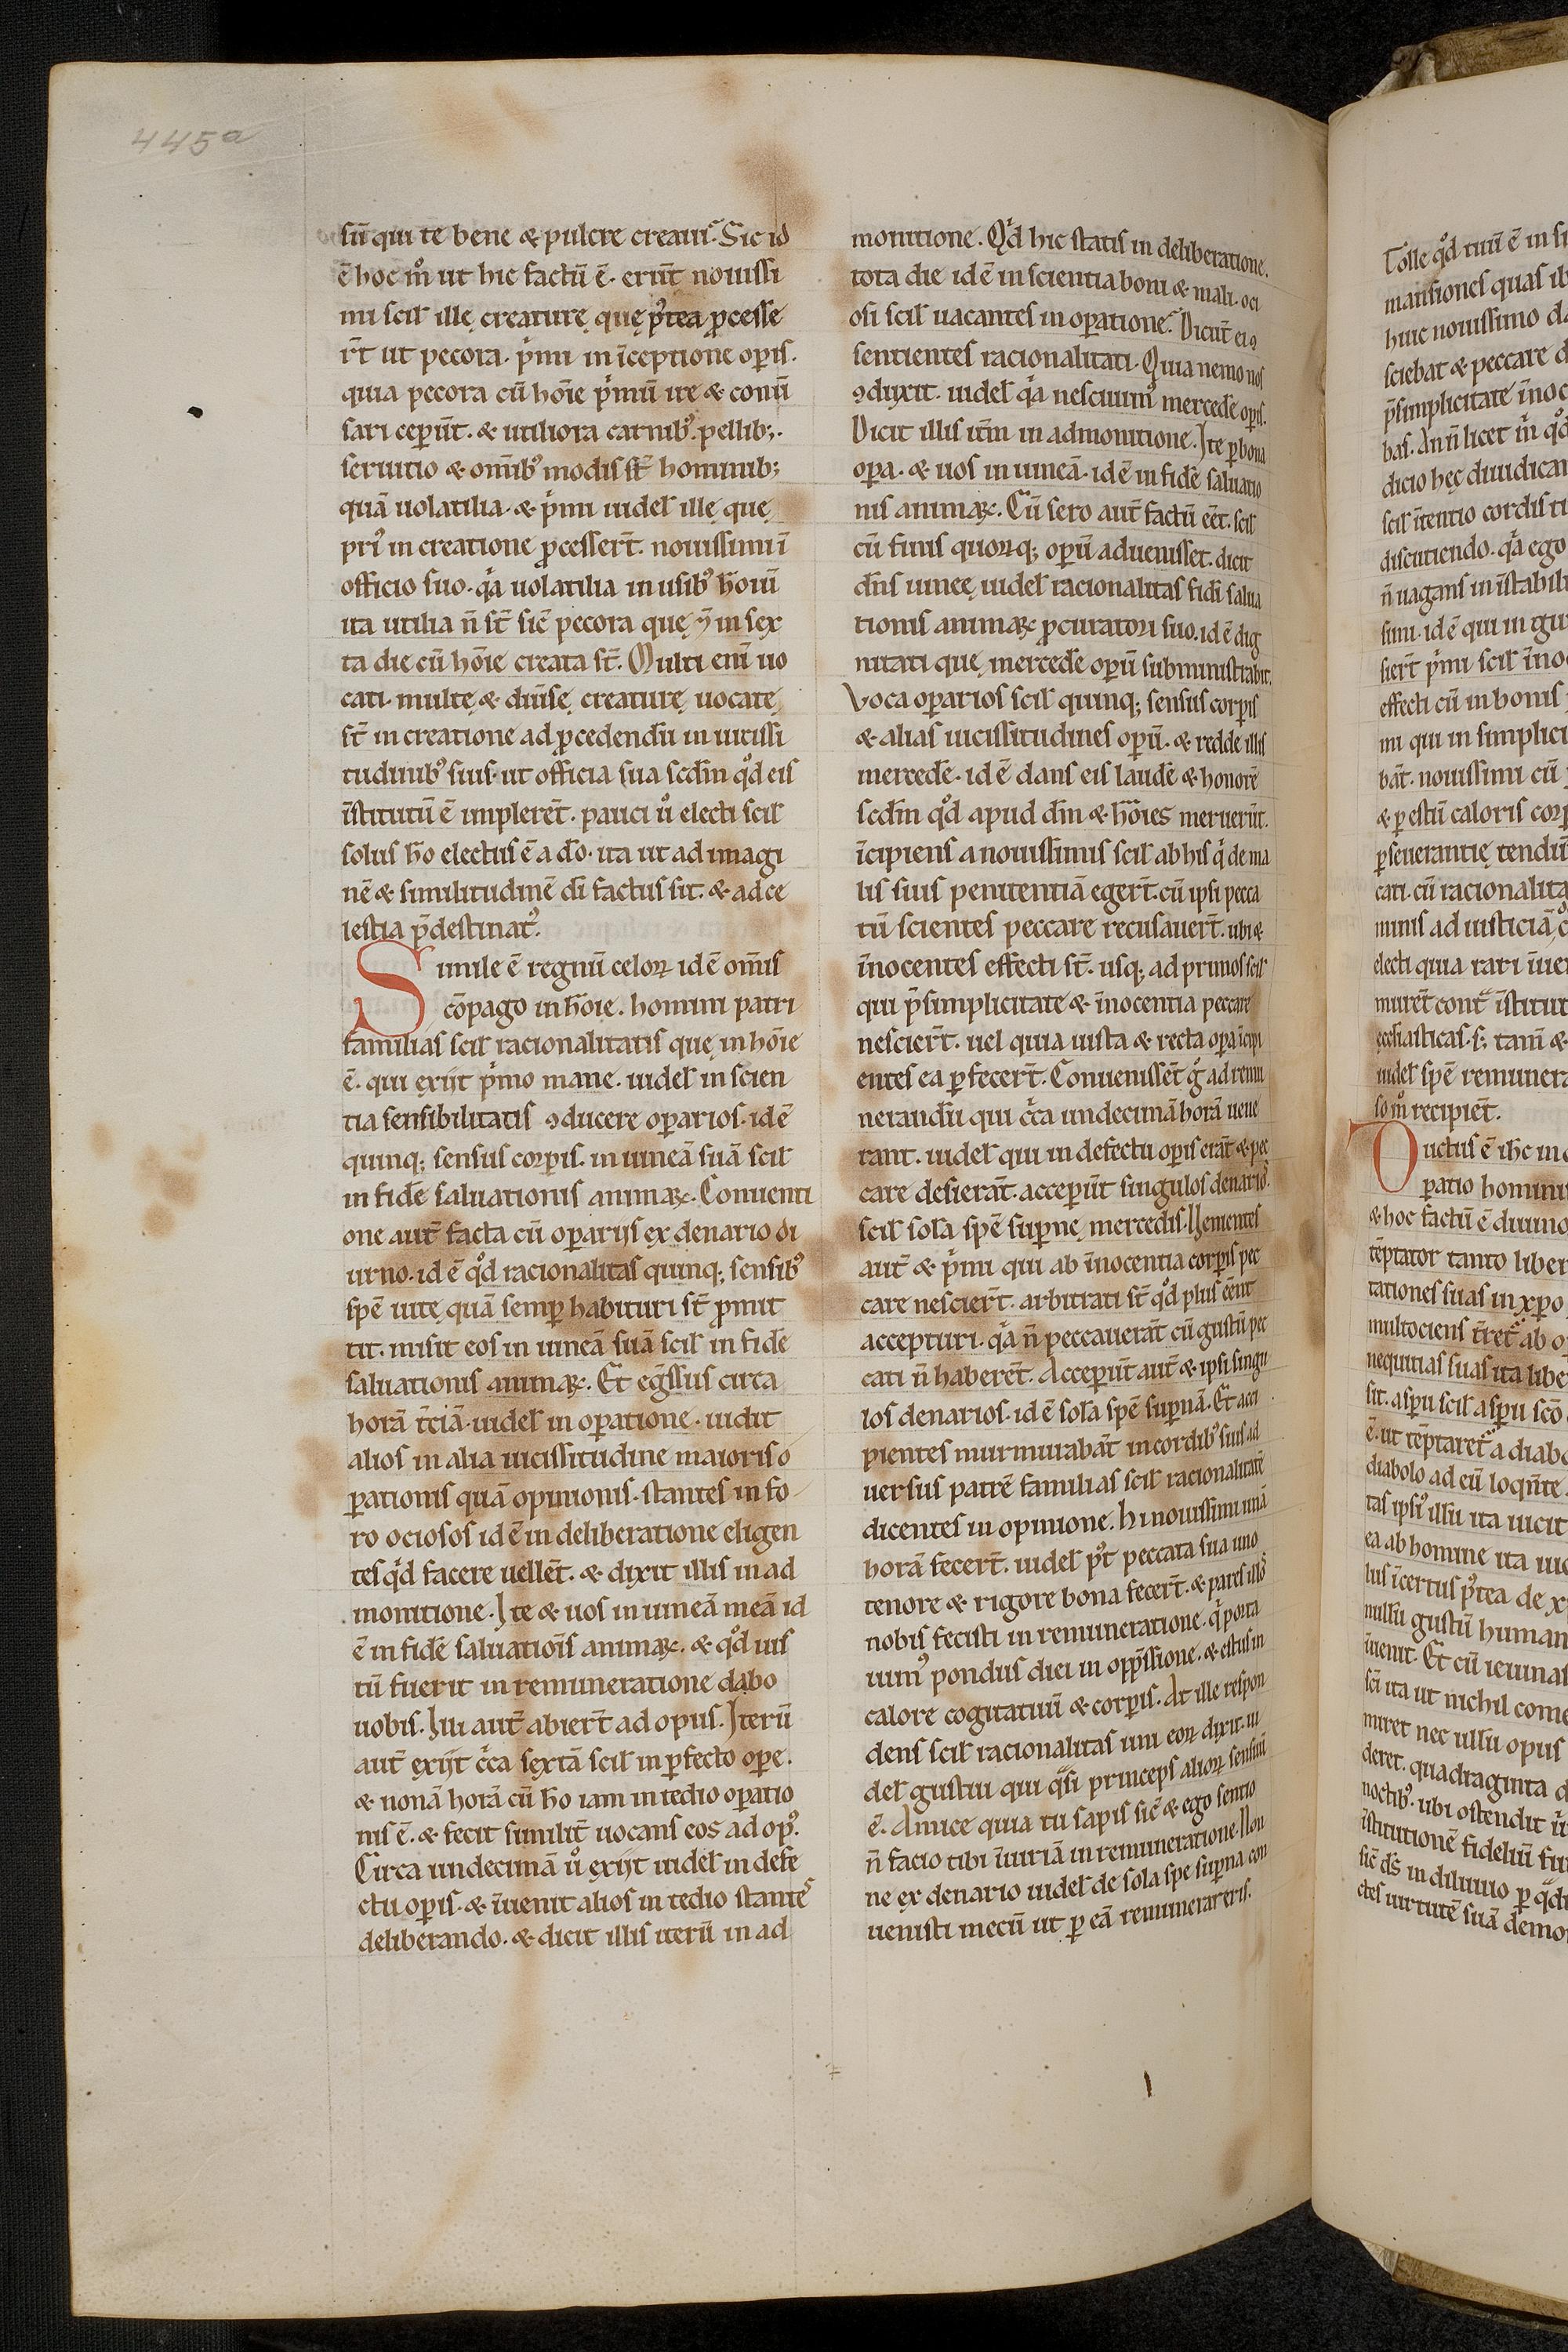 445a
sū qui te bene & pulcre creauit. Sic id
ē hoc mͦ ut hic factū ē. erūt nouissi
mi scilͥ illę creaturę quę pꝰtea ꝓcesse
rt̄ ut pecora. pͥmi in īceptione oꝑis.
quia pecora cū hōie pͥmū ire & conū
sari ceꝑūt. & utiliora carnibꝰ. pellib;.
seruitio & om̄ibꝰ modis st̄ hominib;
quā uolatilia. & pͥmi uidelͥ illę quę
priꝰ in creatione ꝓcessert̄. nouissimi ī
officio suo. qͣa uolatilia in usibꝰ hoīū
ita utilia n̄ st̄ sic̄ pecora quę ⁊ in sex
ta die cū hōie creata st̄. Multi enī uo
cati. multę & diūsę creaturę uocatę
st̄ in creatione ad ꝓcedendū in uicissi
tudinibꝰ suis. ut officia sua scd̄m qͦd eis
īstitutū ē implerēt. pauci ū electi scilͥ
solus hō electus ē a dō. ita ut ad imagi
nē & similitudinē dī factus sit. & ad ce
lestia p̄destinatꝰ.
Simile ē regnū celoꝝ id ē om̄is
cōpago in hōie. homini patri
familias scilͥ racionalitatis quę in hōie
ē. qui exiit pͥmo mane. uidelͥ in scien
tia sensibilitatis ꝯducere oꝑarios. id ē
quinq; sensus corꝑis. in uineā suā scilͥ
in fidē saluationis animaꝝ. Conuenti
one aut̄ facta cū oꝑariis ex denario di
urno. id ē qͦd racionalitas quinq; sensibꝰ
spē uitę quā semꝑ habituri st̄ ꝓmit
tit. misit eos in uineā suā scilͥ in fidē
saluationis animaꝝ. Et eḡssus circa
horā t̄ciā. uidelͥ in oꝑatione. uidit
alios in alia uicissitudine maioris o
ꝑationis quā opinionis. stantes in fo
ro ociosos id ē in deliberatione eligen
tes qͥd facere uellēt. & dixit illis in ad
monitione. Ite & uos in uineā meā id
ē in fidē saluatiōis animaꝝ. & qͦd ius
tū fuerit in remuneratione dabo
uobis. Illi aut̄ abiert̄ ad opus. Iterū
aut̄ exiit cͥca sextā scilͥ in ꝑfecto oꝑe.
& nonā horā cū hō iam in tedio oꝑatio
nis ē. & fecit similit̄ uocans eos ad opꝰ.
Circa undecimā ū exiit uidelͥ in defe
ctu oꝑis. & īuenit alios in tedio stantes
deliberando. & dicit illis iterū in ad
monitione. Qͥd hic statis in deliberatione.
tota die id ē in scientia boni & mali. oci
osi scilͥ uacantes in oꝑatione. Dicūt ei ꝯ
sentientes racionalitati. Quia nemo nos
ꝯduxit. uidelͥ qͣa nesciuimꝰ mercedē oꝑis.
Dicit illis itm̄ in admonitione. Ite ꝑ bona
oꝑa. & uos in uineā. id ē in fidē saluatio
nis animaꝝ. Cū sero aut̄ factū eēt. scilͥ
cū finis quoꝝq; oꝑū aduenisset. dicit
dn̄s uineę uidelͥ racionalitas fidī salua
tionis animaꝝ ꝓcuratori suo. id ē dig
nitati quę mercedē oꝑū subministrabit.
Voca oꝑarios scilͥ quinq; sensus corꝑis
& alias uicissitudines oꝑū. & redde illis
mercedē. id ē dans eis laudē & honorē
scd̄m qͦd apud dm̄ & hōies meruerūt.
īcipiens a nouissimis scilͥ ab his qͥ de ma
lis suis penitentiā egert̄. cū ipsi pecca
tū scientes peccare recusauert̄. ubi &
īnocentes effecti st̄. usq; ad primos scilͥ
qui p̄ simplicitate & īnocentia peccare
nesciert̄. uel quia iusta & recta oꝑa īcipi
entes ea ꝑfecert̄. Conuenissēt gͦ ad remu
nerandū qui cͥca undecimā horā uene
rant. uidelͥ qui in defectu oꝑis erāt & pec
care desierāt. acceꝑūt singulos denarios.
scilͥ solā spē suꝑnę mercedis. Uenientes
aut̄ & pͥmi qui ab īnocentia corꝑis pec
care nesciert̄. arbitrati st̄ qͦd plus eēnt
accepturi. qͣa n̄ peccauerāt cū gustū pec
cati n̄ haberēt. Acceꝑūt aut̄ & ipsi singu
los denarios. id ē solā spē suꝑnā. Et acci
pientes murmurabāt in cordibꝰ suis ad
uersus patrē familias scilͥ racionalitatē
dicentes in opinione. hi nouissimi unā
horā fecert̄. uidelͥ pꝰt peccata sua uno
tenore & rigore bona fecert̄. & pares illos
nobis fecisti in remuneratione. qͥ porta
uimꝰ pondus diei in opp̄ssione. & estus in
calore cogitatiuū & corꝑis. At ille respon
dens scilͥ racionalitas uni eoꝝ dixit. ui
delͥ gustui qui qͣsi princeps alioꝝ sensuū
ē. Amice quia tu sapis sic̄ & ego sentio
n̄ facio tibi īiuriā in remuneratione. Non
ne ex denario uidelͥ de sola spe suꝑna con
uenisti mecū ut ꝑ eā remunerareris.
Tolle qͦd tuū ē in
mansiones quas
huic nouissimo
sciebat & peccare
p̄ simplicitate
bas. An n̄ licet m̄ qͦd
dicio hęc diiudicar
scilͥ ītentio cordis
discutiendo. qͣa ego
n̄ uagans in
simi. id ē qui in
siert̄ pͥmi scilͥ
effecti cū in bonis
mi qui in
bāt. nouissimi cū
& ꝑ estū caloris
ꝑseuerantię
cati. cū
minis ad iusticiā
electi quia rari
muret
ecclͥiasticas. s; tam̄ &
uidelͥ spē
so mͦ recipiēt.
Ductus ē ihc in
ꝑatio
& hoc factū ē
tēptator tanto
tationes suas in xpo
multociens
nequitias suas ita
sit. aspͥu scilͥ aspͥu scō
ē. ut tēptaret̄ a
diabolo ad eū
tas ipsiꝰ illū ita uicit
ea ab homine ita
lus īcertus pꝰtea de
nullū gustū
īuenit. Et cū
scī ita ut nichil
miret nec ullū opus
deret. quadraginta
noctibꝰ. ubi ostendit
īstitutionē fideliū
sic̄ ds̄ in diluuio ꝑ
ctes uirtutē suā